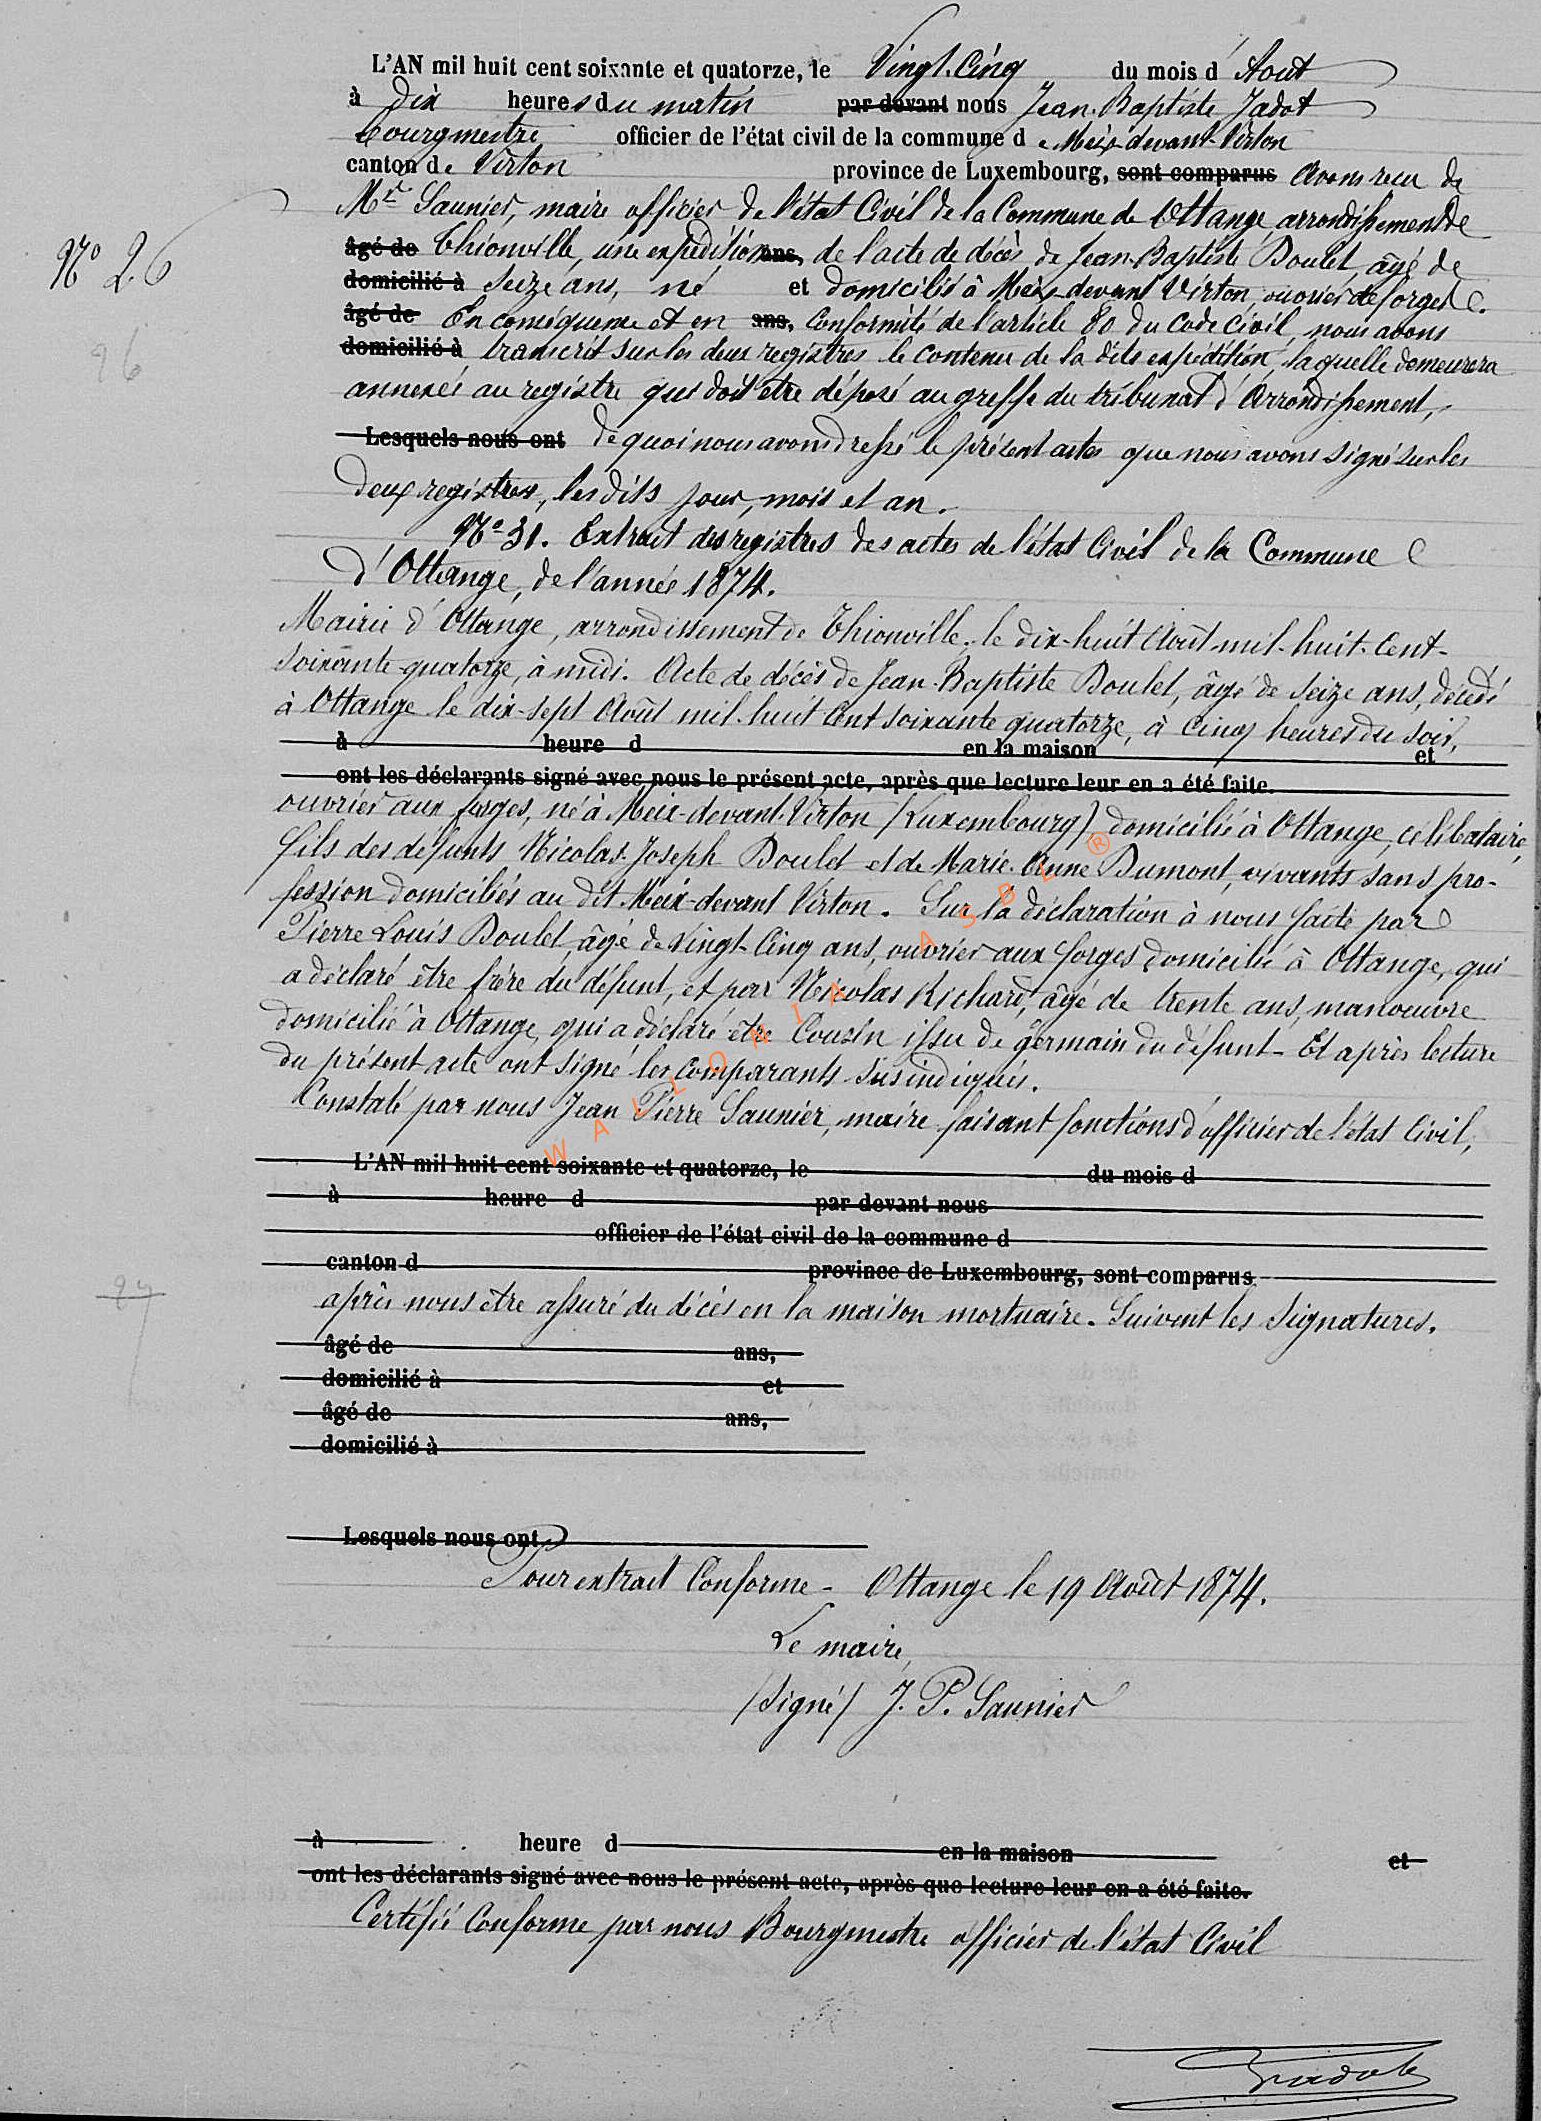 L'AN mil huit cent soixante et quatorze, le Vingt-Cinq du mois d'Aout
à Dix heures du matin par devant nous Jean-Baptiste Jadot
bourgmestre officier de l'état civil de la commune de Meix-devant-Virton
canton de Virton province de Luxembourg, sont comparus avons recu de
Mr Saunier, maire officier de l'état Civil de la Commune de Ottange, arrondissement de
N° 26
âgé de Thionville, une expédition ans, de l'acte de décès de Jean-Baptiste Doulet, âgé de
domicilié à Seize ans, né et domicilié à Meix-devant Virton, ouvrier de forges
96
âgé de En conséquence et en ans, Conformité de l'article 80 du Code Civil, nous avons
domicilié à transcrit sur les deux registres le contenu de la dite expédition, laquelle demeurera
annexée au registre qui doit être déposé au greffe du tribunal d'Arrondissement,
Lesquels nous ont de quoi nous avons dressé le présent acte que nous avons signé sur les
deux registres, les dits jour, mois et an.
N° 31. Extrait des registres des actes de l'état Civil de la Commune
d'Ottange, de l'année 1874.
Mairie d'Ottange, arrondissement de Thionville, le dix-huit Août mil-huit-cent-
soixante-quatorze, à midi. Acte de décès de Jean-Baptiste Doulet, âgé de Seize ans, décédé
à Ottange le dix-sept Août mil-huit Cent soixante quatorze, à Cinq heures du soir,
à heure d en la maison et
ont les déclarants signé avec nous le présent acte, après que lecture leur en a été faite.
ouvrier aux forges, né à Meix-devant-Virton (Luxembourg) domicilié à Ottange, célibataire,
fils des défunts Nicolas-Joseph Doulet et de Marie-Anne Dumont, vivants sans pro-
fession domiciliés au dit Meix-devant Virton. Sur la déclaration à nous faite par
Pierre Louis Doulet, âgé de Vingt-Cinq ans, ouvrier aux forges domicilié à Ottange, qui
a déclaré être frère du défunt, et par Nicolas Richard, âgé de trente ans, manoeuvre
domicilié à Ottange, qui a déclaré être Cousin issu de germain du défunt - Et après lecture
du présent acte ont signé les Comparants susindiqués.
Constaté par nous Jean Pierre Saunier, maire faisant fonctions d'officier de l'état Civil,
WALLONIA ASBL ®
L'AN mil huit cent soixante et quatorze, le du mois d
à heure d par devant nous
officier de l'état civil de la commune d
canton d province de Luxembourg, sont comparus
97
après nous être assuré du décès en la maison mortuaire. Suivent les signatures.
âgé de ans,
domicilié à et
âgé de ans,
domicilié à
Lesquels nous ont
Pour extrait Conforme - Ottange le 19 Août 1874.
Le maire,
(signé) J. P. Saunier
à heure d en la maison et
ont les déclarants signé avec nous le présent acte, après que lecture leur en a été faite.
Certifié Conforme par nous Bourgmestre officier de l'état Civil
Jadot